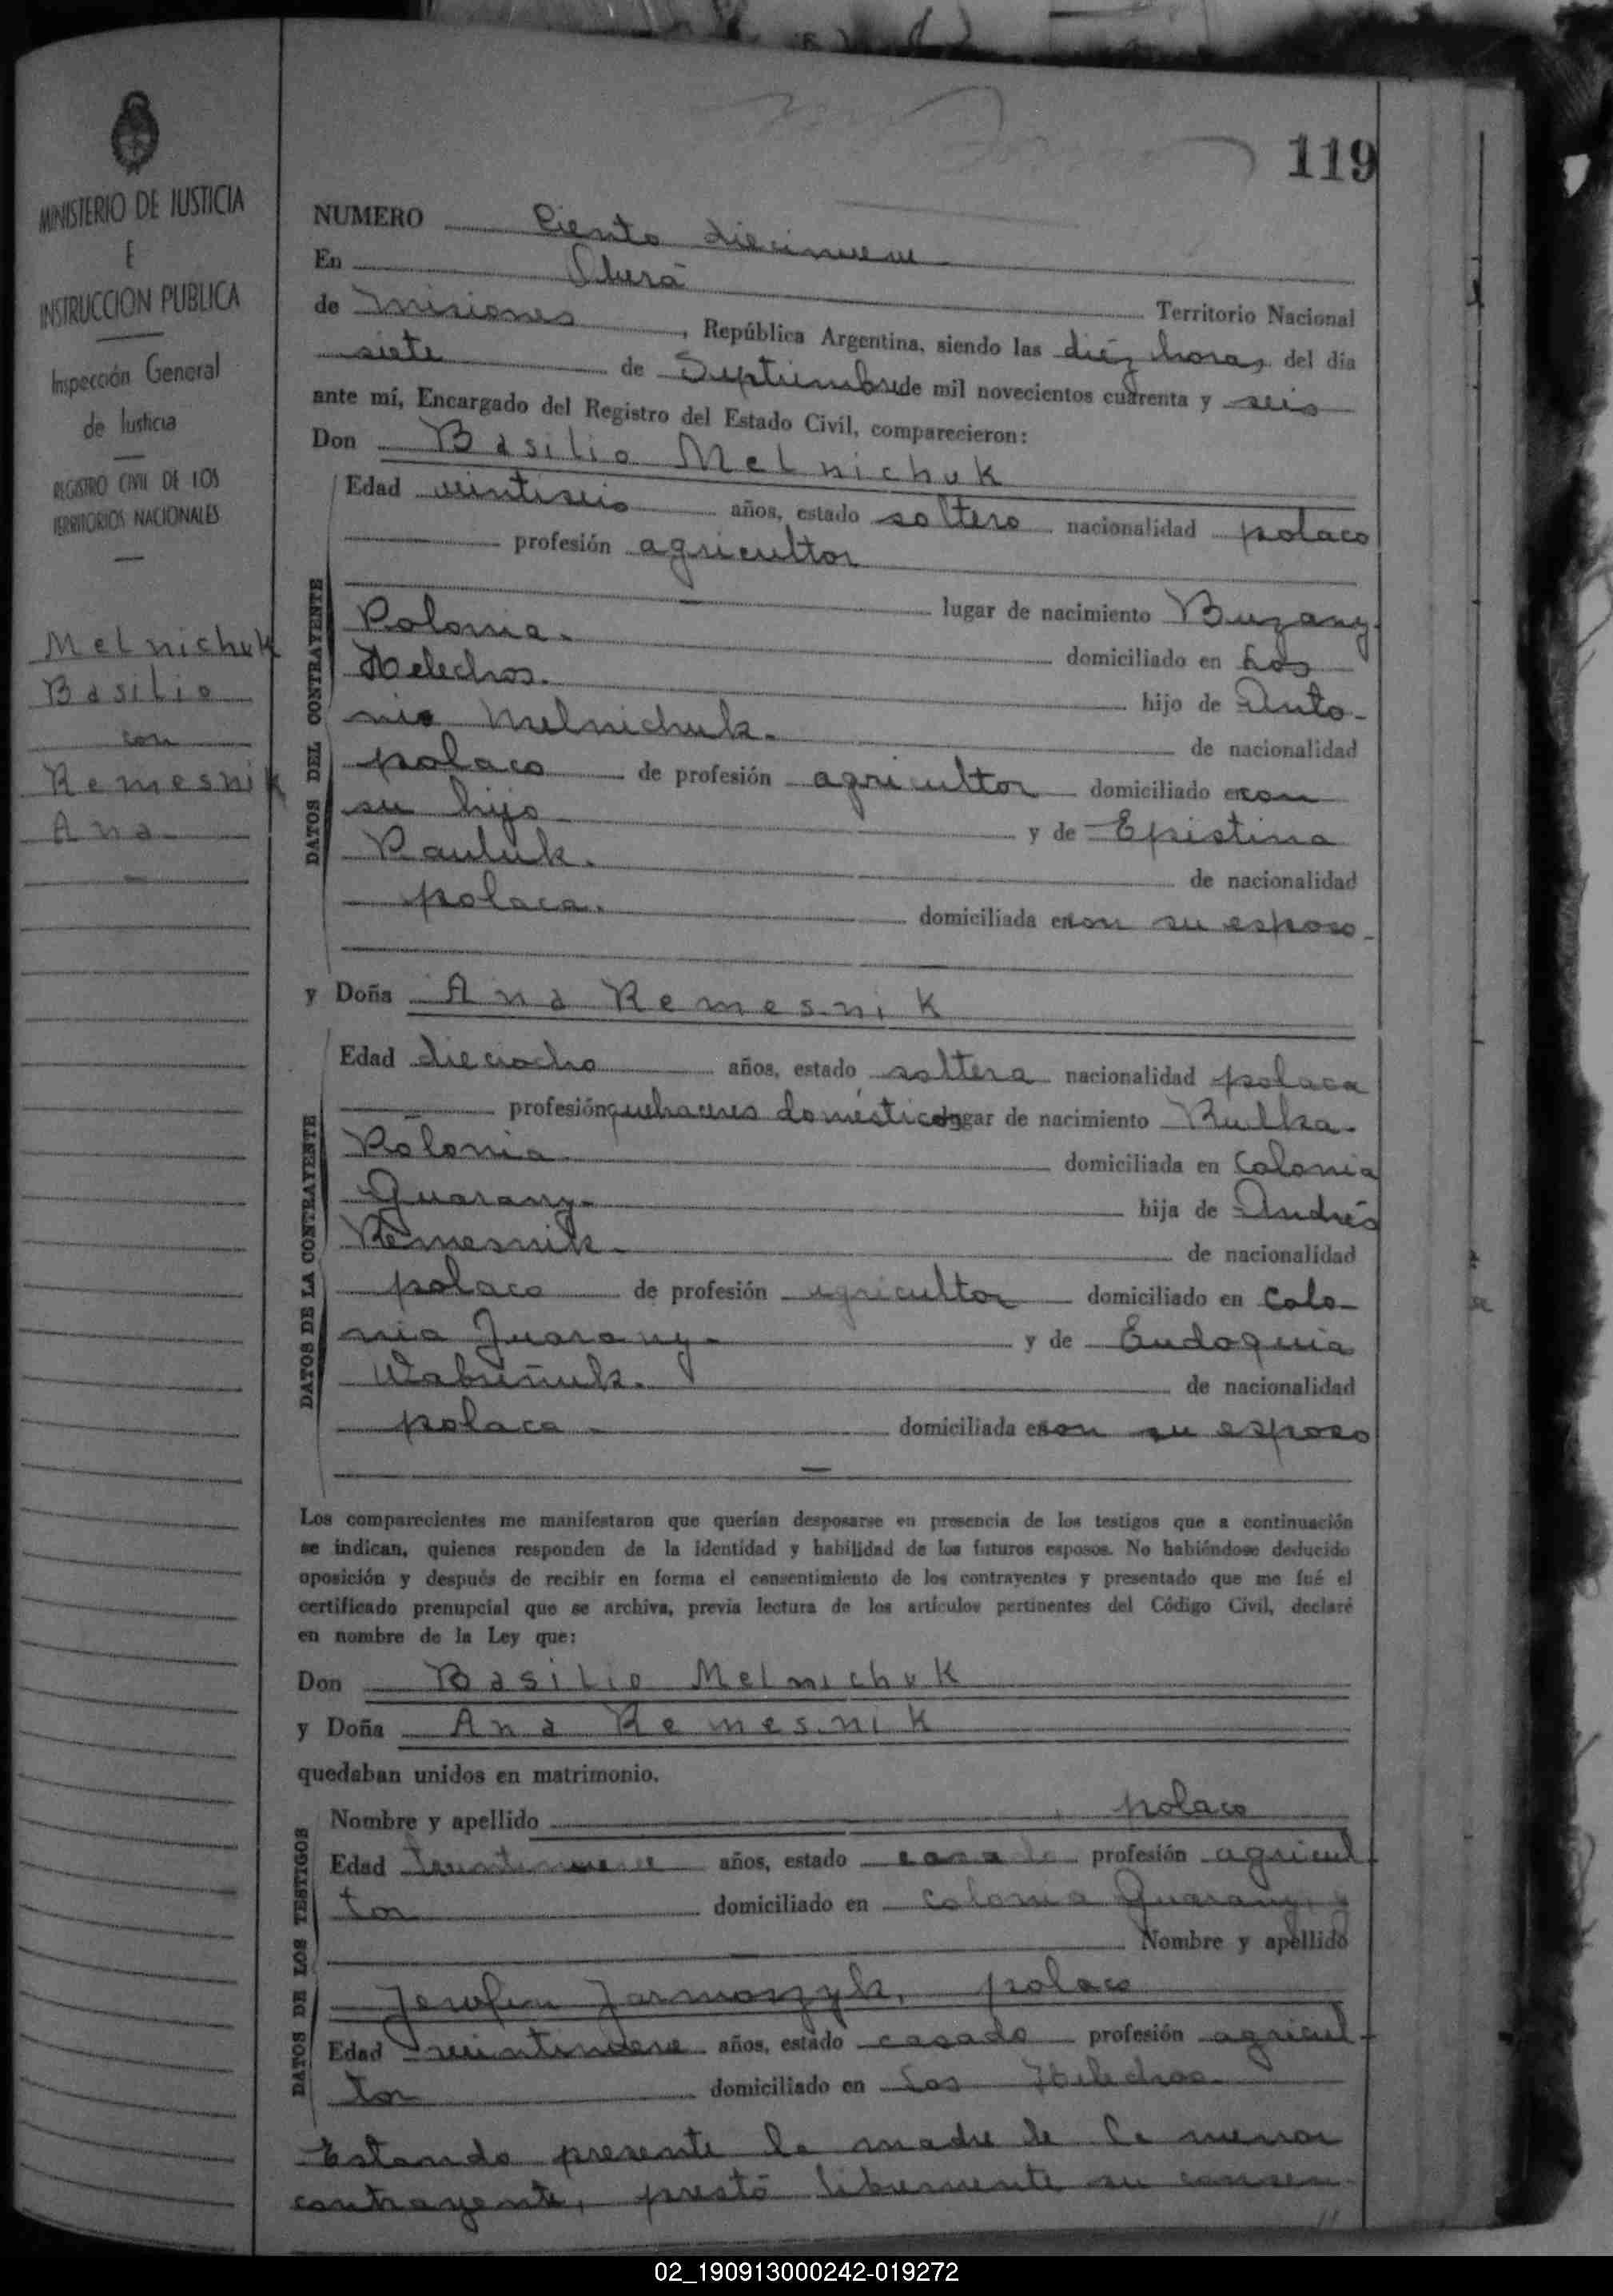 119
MINISTERIO DE JUSTICIA
E
INSTRUCCION PUBLICA
Inspección General
de Justicia
REGISTRO CIVIL DE LOS
TERRITORIOS NACIONALES
Melnichuk
Basilio
con
Remesnik
Ana
NUMERO Ciento diecinueve
En Oberá
Territorio Nacional
de Misiones, República Argentina, siendo las diéz horas del día
siete de Septiembre de mil novecientos cuarenta y seis
ante mí, Encargado del Registro del Estado Civil, comparecieron:
Don Basilio Melnichuk
DATOS DEL CONTRAYENTE
Edad veintiseis años, estado soltero nacionalidad polaco
profesión agricultor
lugar de nacimiento Buzany.
Polonia. domiciliado en Los
Helechos. hijo de Anto-
nio Melnichuk. de nacionalidad
polaco de profesión agricultor domiciliado en con
su hijo y de Epistina
Pauluk. de nacionalidad
polaca. domiciliada en con su esposo-
y Doña Ana Remesnik
DATOS DE LA CONTRAYENTE
Edad dieciocho años, estado soltera nacionalidad polaca
profesión quehaceres domésticos lugar de nacimiento Rudka.
Polonia domiciliada en Colonia
Guarany. hija de Andrés
Remesnik. de nacionalidad
polaco de profesión agricultor domiciliado en Colo-
nia Guarany. y de Eudoquia
de nacionalidad
polaca domiciliada en con su esposo
Los comparecientes me manifestaron que querían desposarse en presencia de los testigos que a continuación
se indican, quienes responden de la identidad y habilidad de los futuros esposos. No habiéndose deducido
oposición y después de recibir en forma el consentimiento de los contrayentes y presentado que me fué el
certificado prenupcial que se archiva, previa lectura de los artículos pertinentes del Código Civil, declaré
en nombre de la Ley que:
Don Basilio Melnichuk
y Doña Ana Remesnik
quedaban unidos en matrimonio.
DATOS DE LOS TESTIGOS
Nombre y apellido polaco
Edad años, estado casado profesión agricul-
tor domiciliado en Colonia Guarany, y
Nombre y apellido
Jarmoszyk, polaco
Edad veintinueve años, estado casado profesión agricul-
tor domiciliado en Los Helechos.
Estando presente la madre de la menor
contrayente, prestó libremente su consen-
02_190913000242-019272